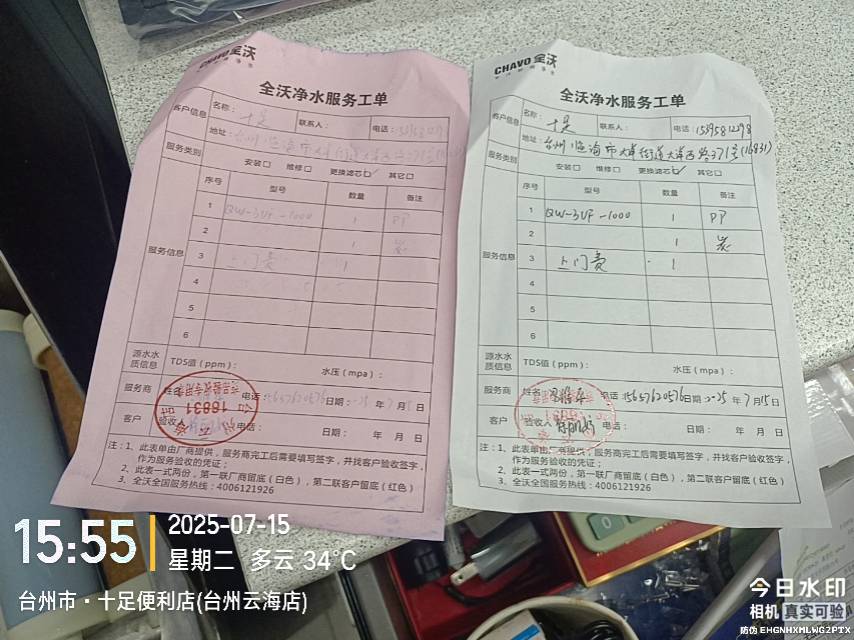 CHAVO 全沃
全沃净水服务工单
客户信息
名称：十足
联系人：
电话：
地址：台州
服务类别
安装□ 维修□ 更换滤芯☑ 其它□
服务信息
序号 型号 数量 备注
1 QW-3UF-1000 1 PP
2 1 炭
3 上门费 1
4
5
6
源水水质信息
TDS值（ppm）： 水压（mpa）：
服务商 姓名 电话： 日期：2025年7月15日
客户 验收人 电话： 日期： 年 月 日
注：1、此表单由厂商提供，服务商完工后需要填写签字，并找客户验收签字，
作为服务验收的凭证；
2、此表一式两份，第一联厂商留底（白色），第二联客户留底（红色）
3、全沃全国服务热线：4006121926
16831
CHAVO 全沃
全沃净水服务工单
客户信息
名称：十足
联系人：
电话：15395812198
地址：台州临海市大洋街道大洋西路371号(16831)
服务类别
安装□ 维修□ 更换滤芯☑ 其它□
服务信息
序号 型号 数量 备注
1 QW-3UF-1000 1 PP
2 1 炭
3 上门费 1
4
5
6
源水水质信息
TDS值（ppm）： 水压（mpa）：
服务商 姓名 电话： 日期：2025年7月15日
客户 验收人 电话： 日期： 年 月 日
注：1、此表单由厂商提供，服务商完工后需要填写签字，并找客户验收签字，
作为服务验收的凭证；
2、此表一式两份，第一联厂商留底（白色），第二联客户留底（红色）
3、全沃全国服务热线：4006121926
15:55
2025-07-15
星期二 多云 34℃
台州市·十足便利店(台州云海店)
今日水印
相机 真实可验
防伪 EHGNHXMLWG2PTX